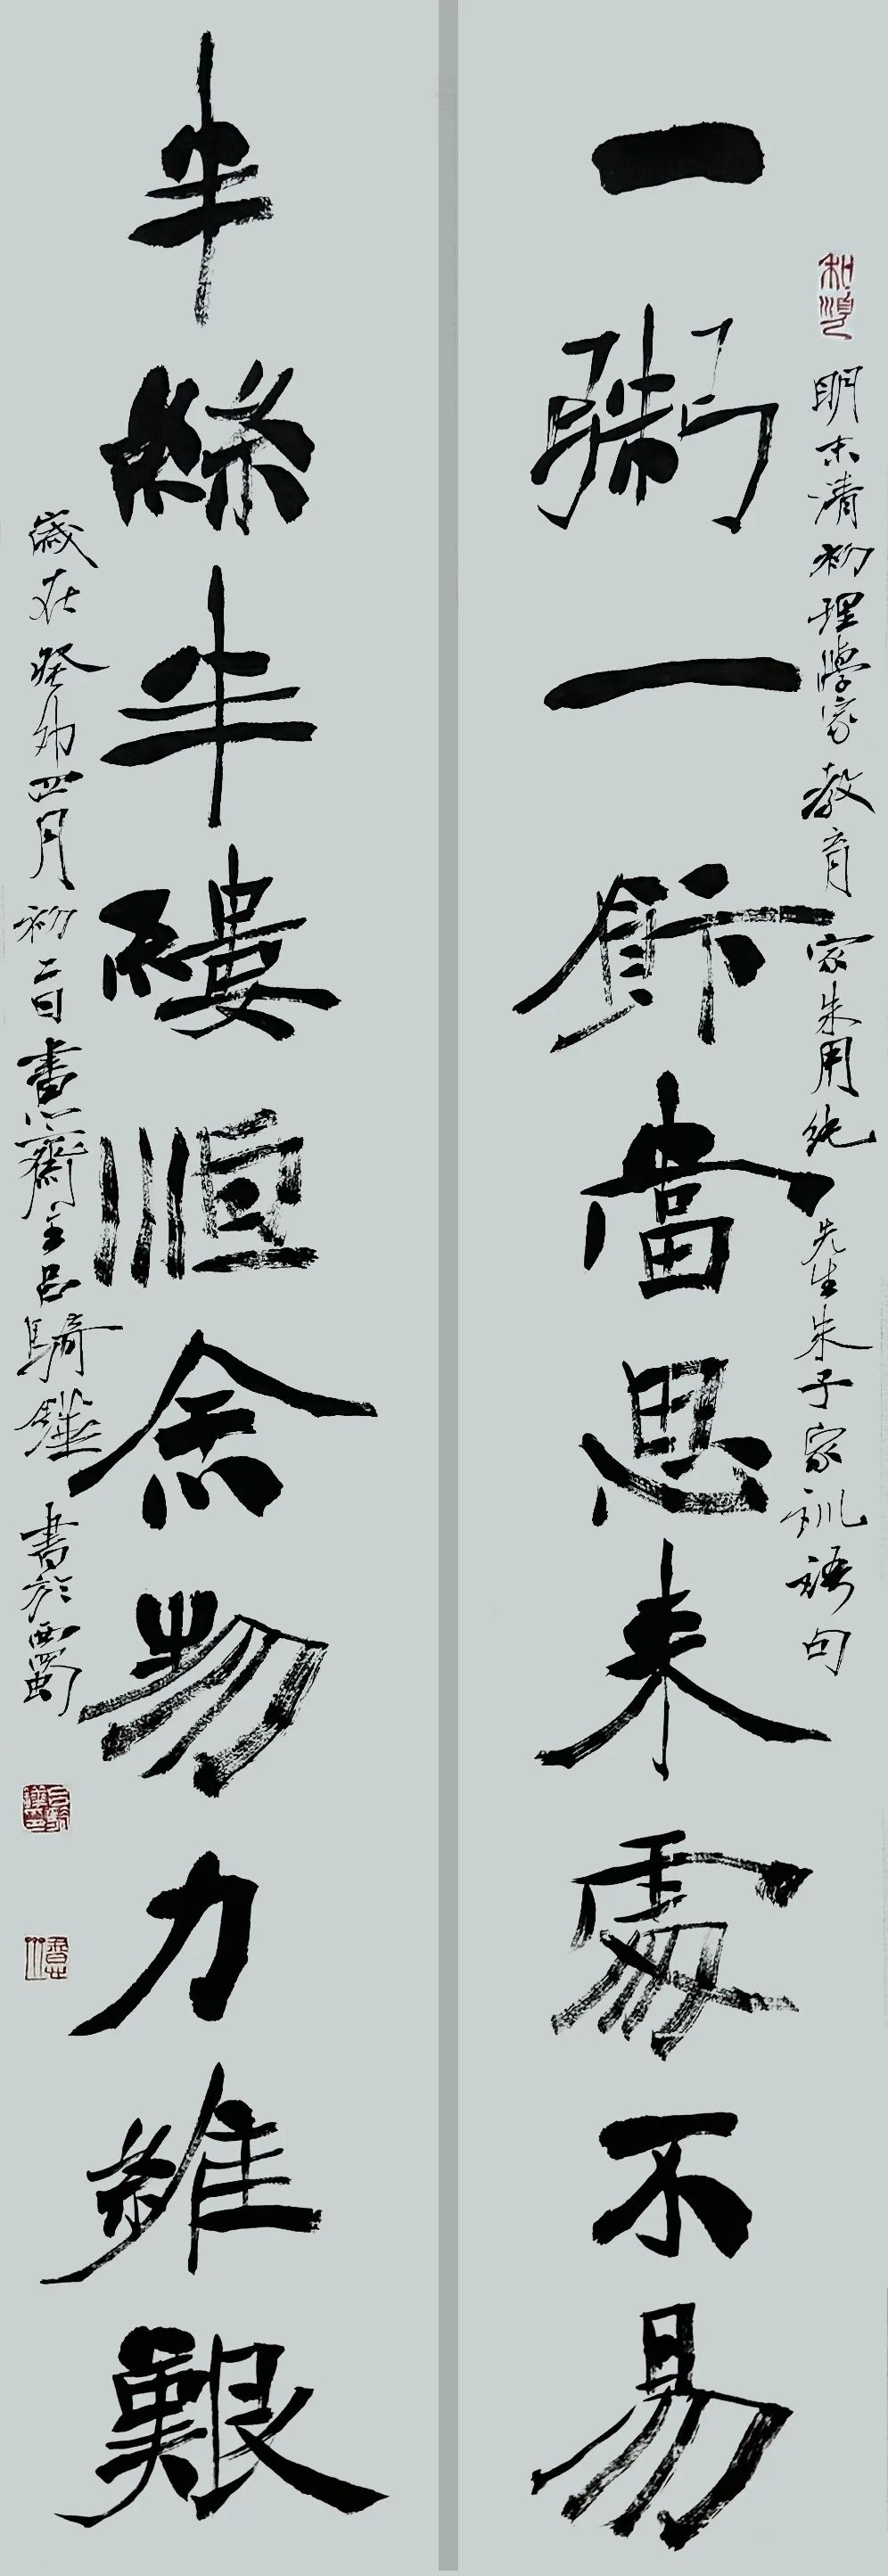 和順
明末清初理學家教育家朱用純先生朱子家訓語句
一粥一飰當思来處不易
半絲半縷恒念物力維艱
歲在癸卯四月初二日齋主呂騎鐵書於西蜀